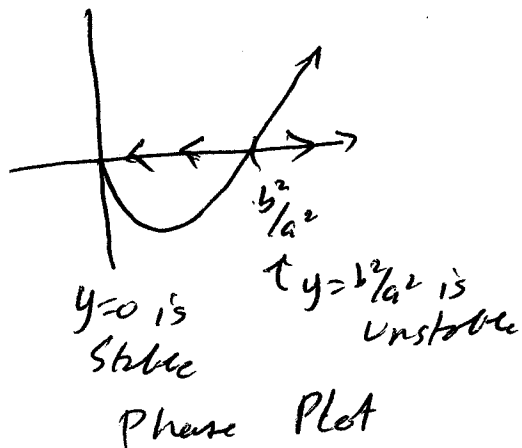 b²/a²
y=0 is
Stable
↑ y=b²/a² is
Unstable
Phase Plot